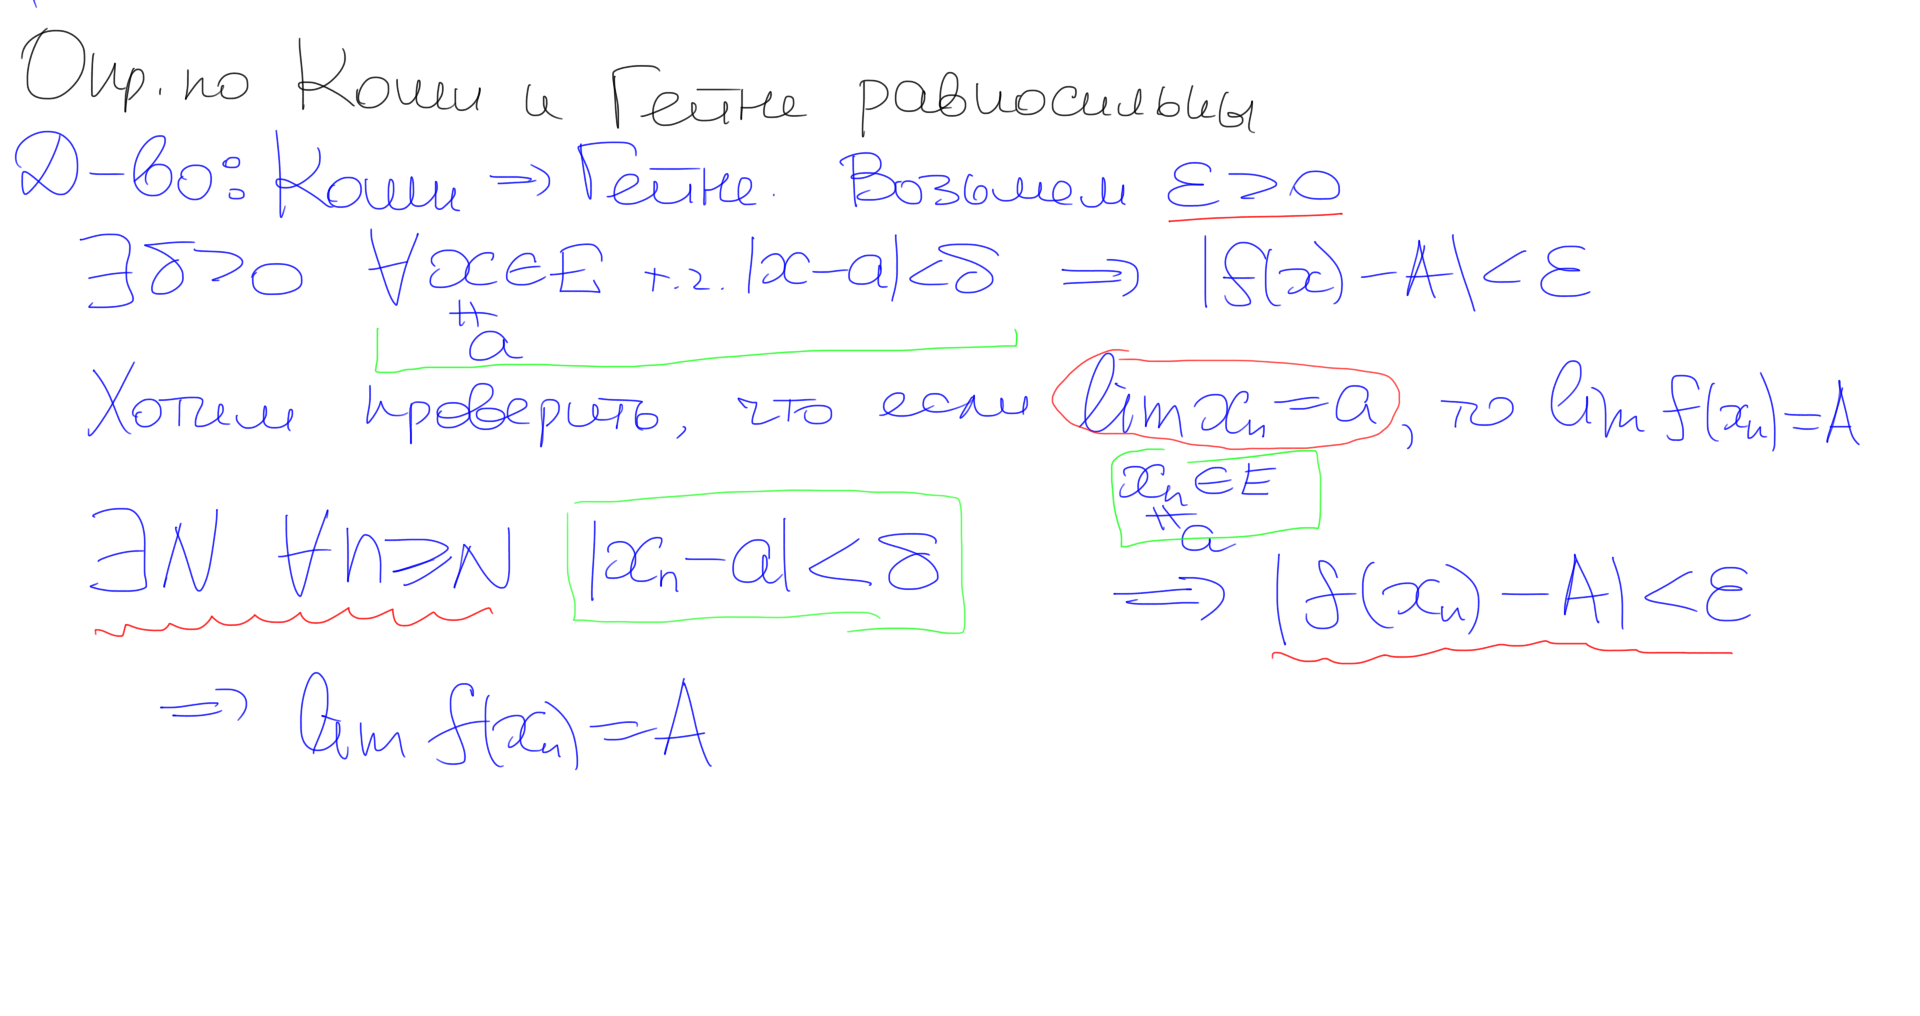 Опр. по Коши и Гейне равносильны
Д-во: Коши ⇒ Гейне. Возьмем ε>0
∃δ>0 ∀x∈E т.ч. |x-a|<δ ⇒ |f(x)-A|<ε
≠
a
Хотим проверить, что если lim xₙ=a, то lim f(xₙ)=A
xₙ∈E
≠
a
∃N ∀n⩾N |xₙ-a|<δ ⇒ |f(xₙ)-A|<ε
⇒ lim f(xₙ)=A